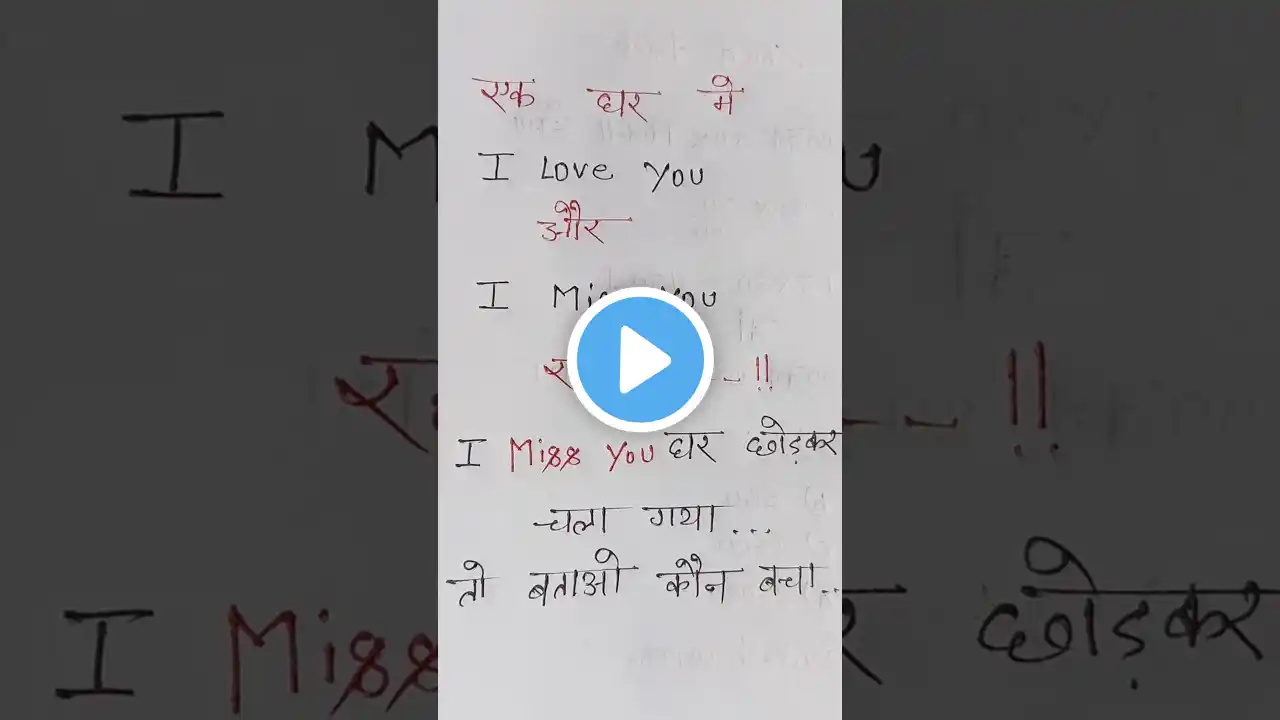 एक घर मे
I Love You
और
I You
!!
I Miss You घर छोड़कर
चला गया...
तो बताओ कौन बचा..